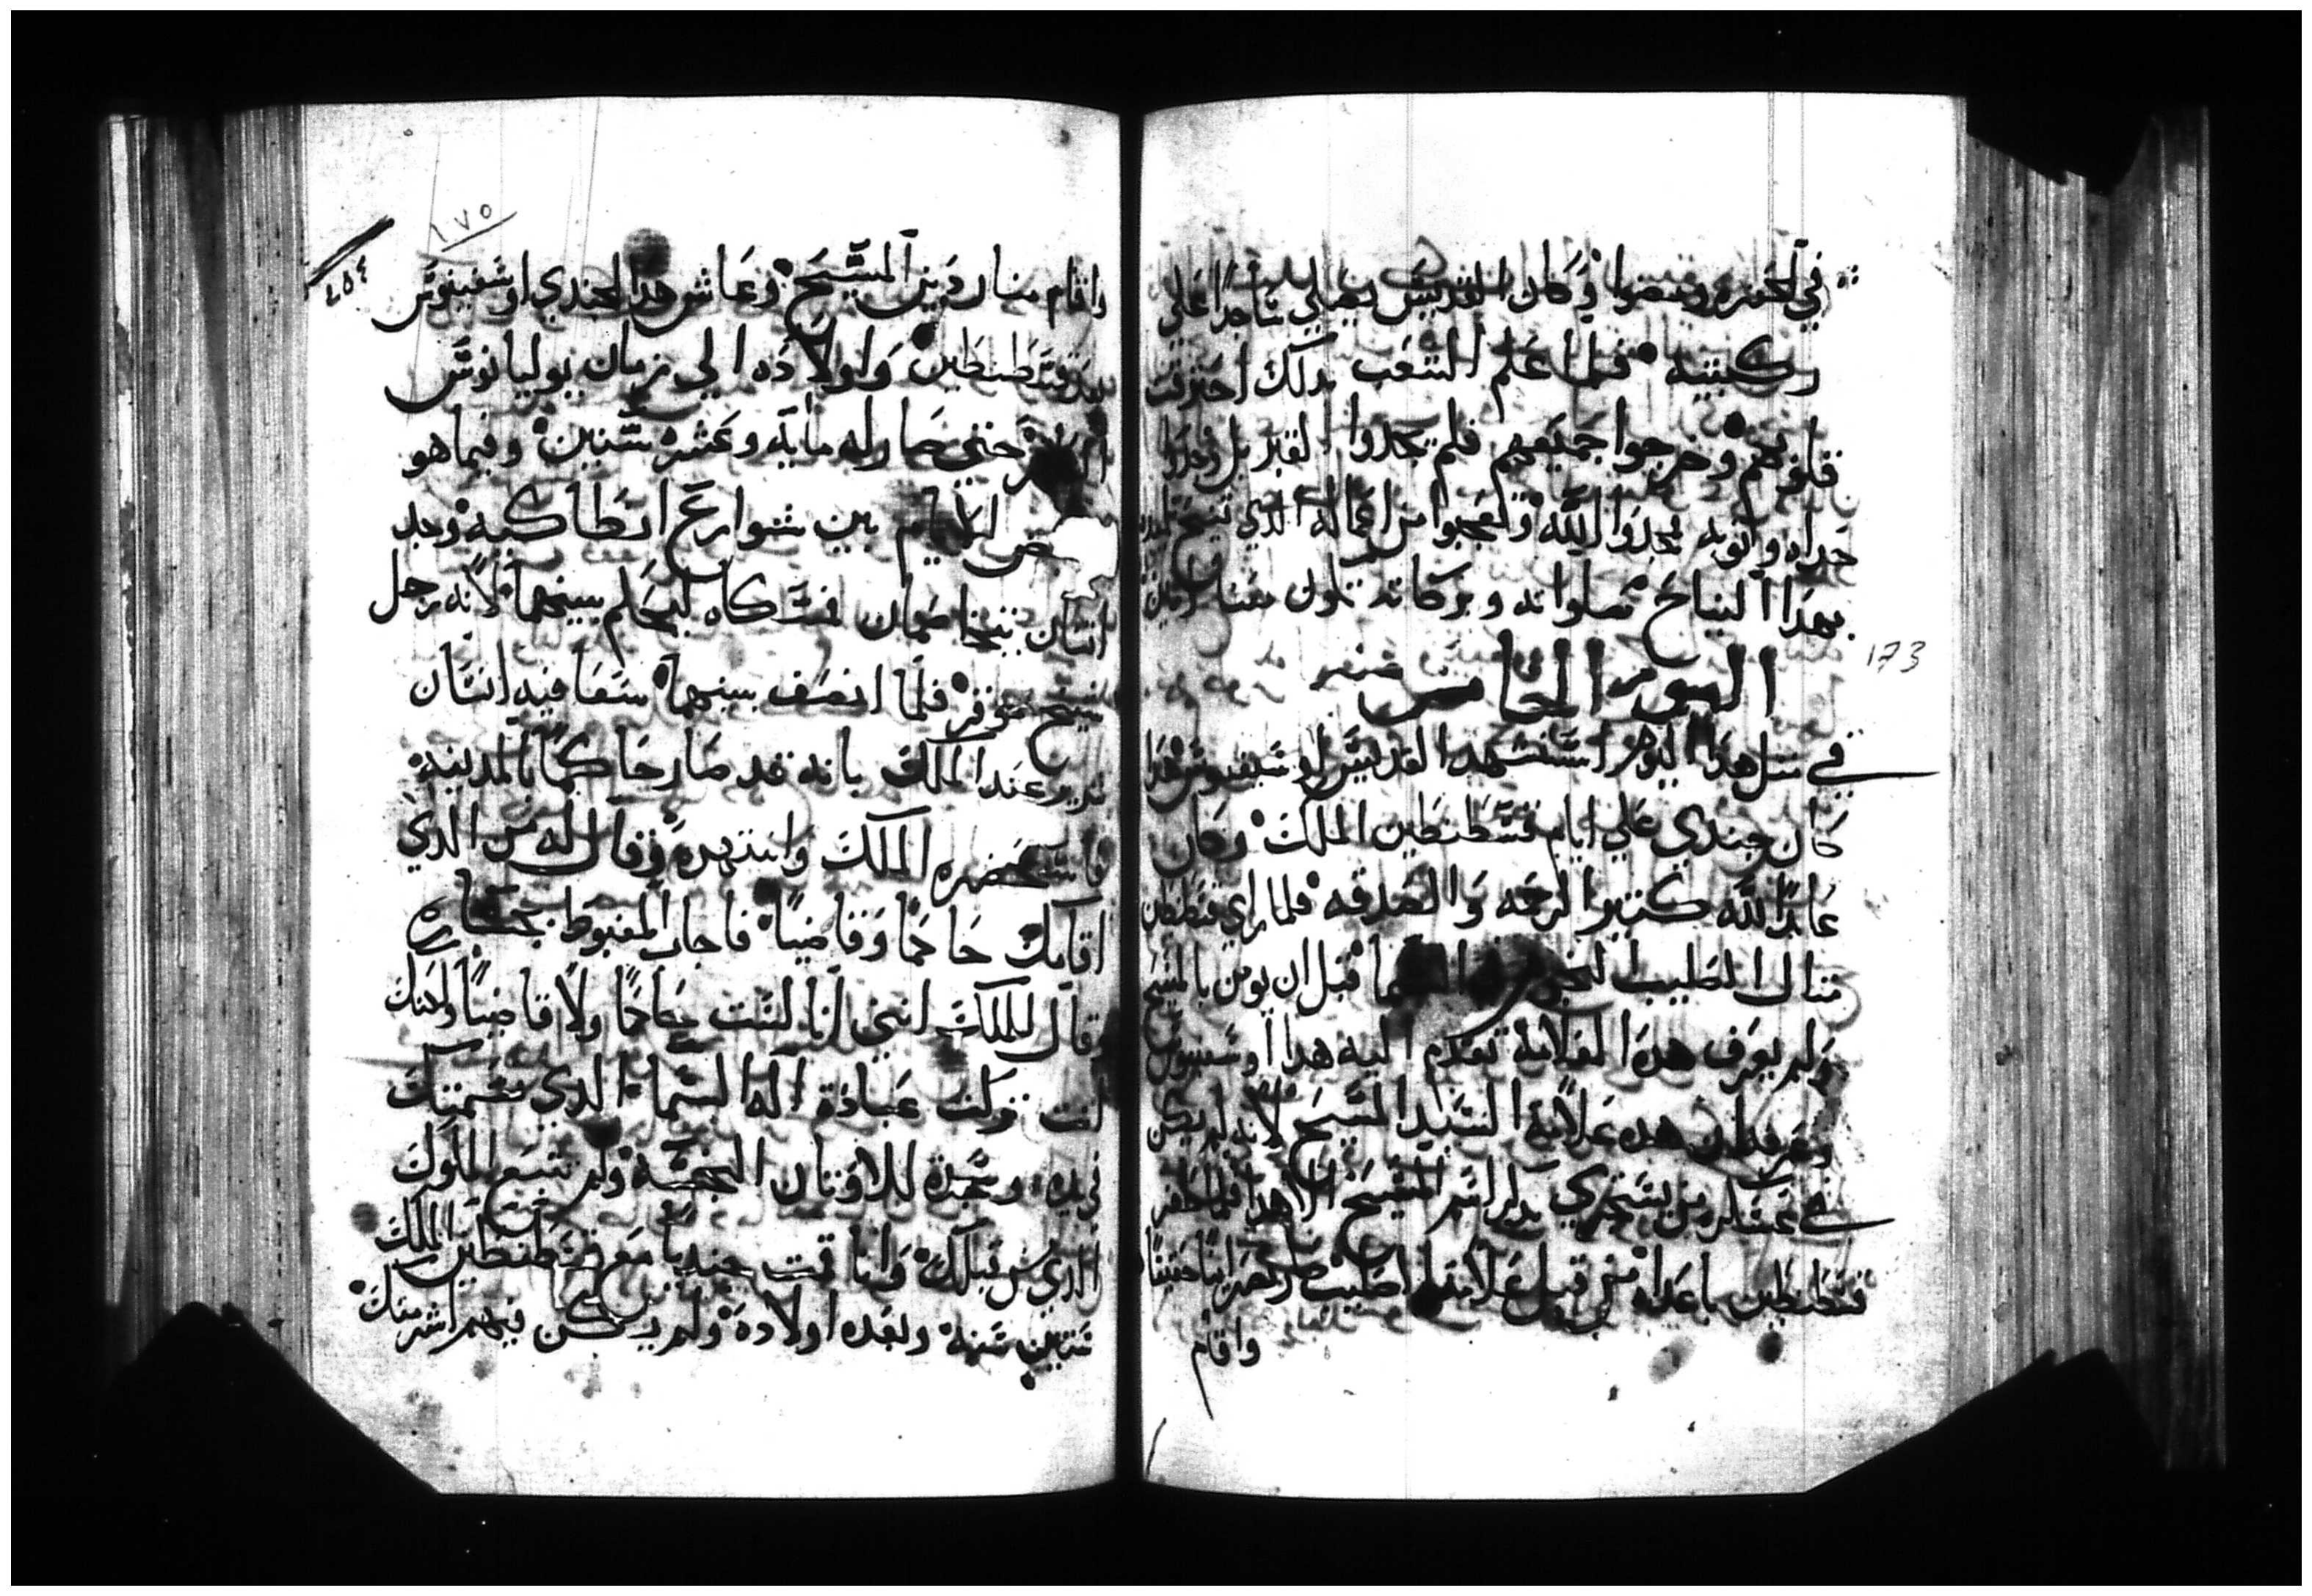 في الحفره ومضوا وكان القديس يصلي ساجدا علي
ركبتيه فلما علم الشعب بدلك احترقت
قلوبهم وخرجوا جميعهم فلم يجدوا القديس بل وجدوا
حداه وثوبه فمجدوا الله وتعجبوا من اعماله الدي تنيح
بهدا النياح صلواته وبركاته تكون معنا امين
اليوم الخامس منه
في متل هدا اليوم استشهد القديس اوسيغنيوس هدا
كان جندي علي ايام قسطنطين الملك وكان
عابدا لله كتير الرحمه والصدقه فلما راي قسطنطين
متال الصليب النجوم في السما قبل ان يومن بالمسيح
ولم يعرف هده العلامة تقدم اليه هدا اوسغنيوس
وعرفه ان هده علامة السيد المسيح لانه لم يكن
في عسكره من يستجري يدكر اسم المسيح الا هدا فلما ظفر
قسطنطين باعداه من قبل علامة الصليب صار نصرانيا حقيقيا
واقام
173
١٧٥
واقام منار دين المسيح وعاش هدا الجندي اوسغينوس
بعد قسطنطين واولاده الي زمان يوليانوس
الكافر حتي صار له مايه وعشره سنين وفيما هو
بعض الايام بين شوارع انطاكيه وجد
انسان يتخاصمان فتسكاه ليحكم بينهما لانه رجل
شيخ موقر فلما انصف بينهما سعا فيه انسان
شرير عند الملك بانه قد صار حاكما بالمدينه
فاستحضره الملك وانتهره وقال له من الدي
اقامك حاكما وقاضيا فاجاب المغبوط بجساره
وقال للملك انني انا لست حاكما ولا قاضيا ولكنك
انت تركت عبادة اله السما الدي نسمتك
في يده وسجدة للاوتان النجسه ولم تتبع الملوك
الدي من قبلك وانا قمت جنديا مع قسطنطين الملك
ستين سنه وبعده اولاده ولم يكن فيهم اشر منك